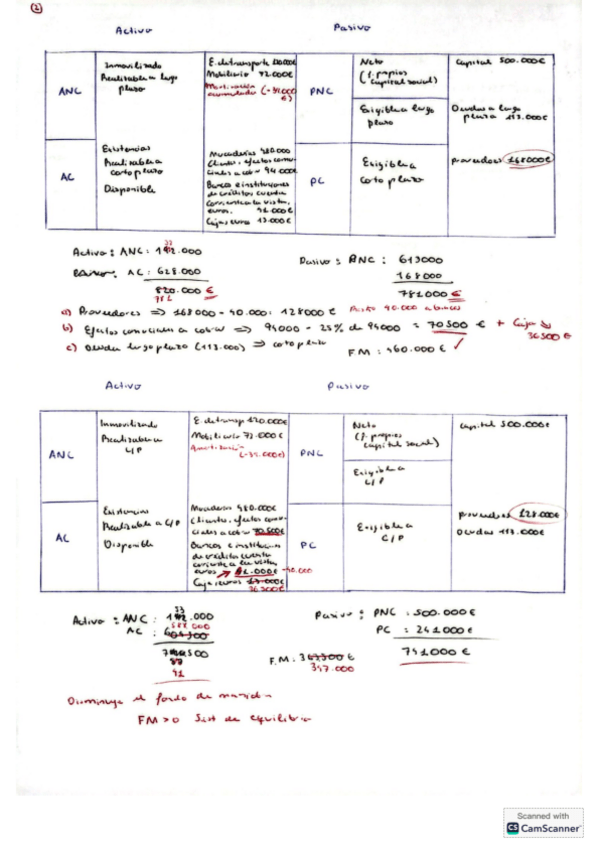 (2)
Activo Pasivo
ANC
Inmovilizado
Realizable a largo
plazo
E. de transporte 120.000€
Mobiliario 72.000€
Amortización
acumulada (-39000
€)
PNC
Neto
(f. propios
capital social)
Capital 500.000€
Exigible a largo
plazo
Deudas a largo
plazo 113.000€
AC
Existencias
Realizable a
corto plazo
Disponible
Mercaderías 480.000
Clientes, efectos comer-
ciales a cobrar 94.000€
Bancos e instituciones
de créditos cuenta
corriente a la vista,
euros. 41.000€
Caja, euros 13.000€
PC
Exigible a
corto plazo
Proveedores 168000€
Activo: ANC: 192.000
AC: 628.000
820.000 €
781
Pasivo: PNC: 613000
168000
781000 €
a) Proveedores ⇒ 168000 - 40.000: 128000 €
b) Efectos comerciales a cobrar ⇒ 94000 - 25% de 94000 = 70500 € + Caja
36500 €
c) Deudas largo plazo (113.000) ⇒ corto plazo
F.M: 460.000 € ✓
Activo Pasivo
ANC
Inmovilizado
Realizable a
L/P
E. de transp 120.000€
Mobiliario 72.000€
Amortización
(-39.000€)
PNC
Neto
(f. propios
capital social)
Capital 500.000€
Exigible a
L/P
AC
Existencias
Realizable a C/P
Disponible
Mercaderías 480.000€
Clientes, efectos comer-
ciales a cobrar 70.500€
Bancos e instituciones
de crédito cuenta
corriente a la vista
euros 1.000€ -40.000
Caja, euros 13.000€
36500€
PC
Exigible a
C/P
Proveedores 128.000€
Deudas 113.000€
Activo: ANC: .000
588 000
AC:
41
Pasivo: PNC: 500.000€
PC: 241000€
741000 €
F.M:
347.000
Disminuye el fondo de maniobra
FM>0 Sist de equilibrio
Scanned with
CS CamScanner